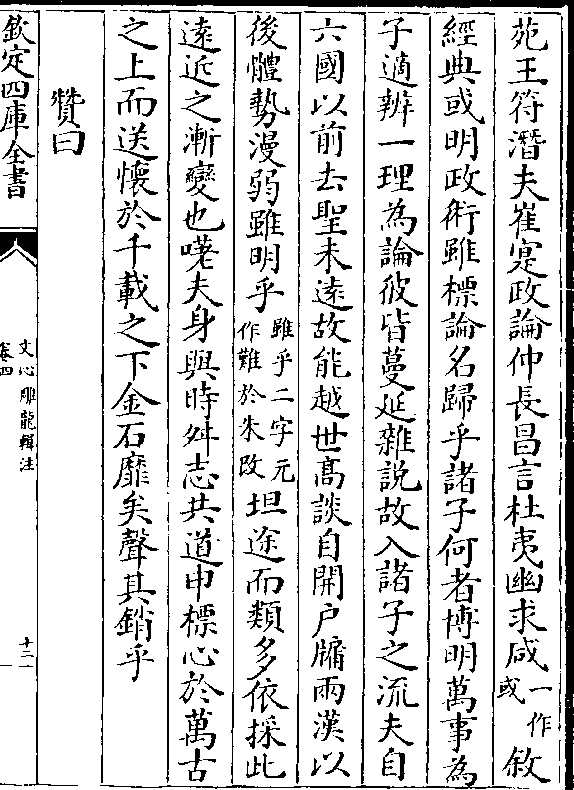 苑王符潛夫崔寔政論仲長昌言杜夷幽求咸一作或敘
經典或明政術雖標論名歸乎諸子何者博明萬事為
子適辨一理為論彼皆蔓延雜說故入諸子之流夫自
六國以前去聖未遠故能越世高談自開戶牖兩漢以
後體勢漫弱雖明乎雖乎二字元作難於朱改坦途而類多依採此
遠近之漸變也嗟夫身與時舛志共道申標心於萬古
之上而送懷於千載之下金石靡矣聲其銷乎
贊曰
欽定四庫全書
文心雕龍輯注
卷四
十二